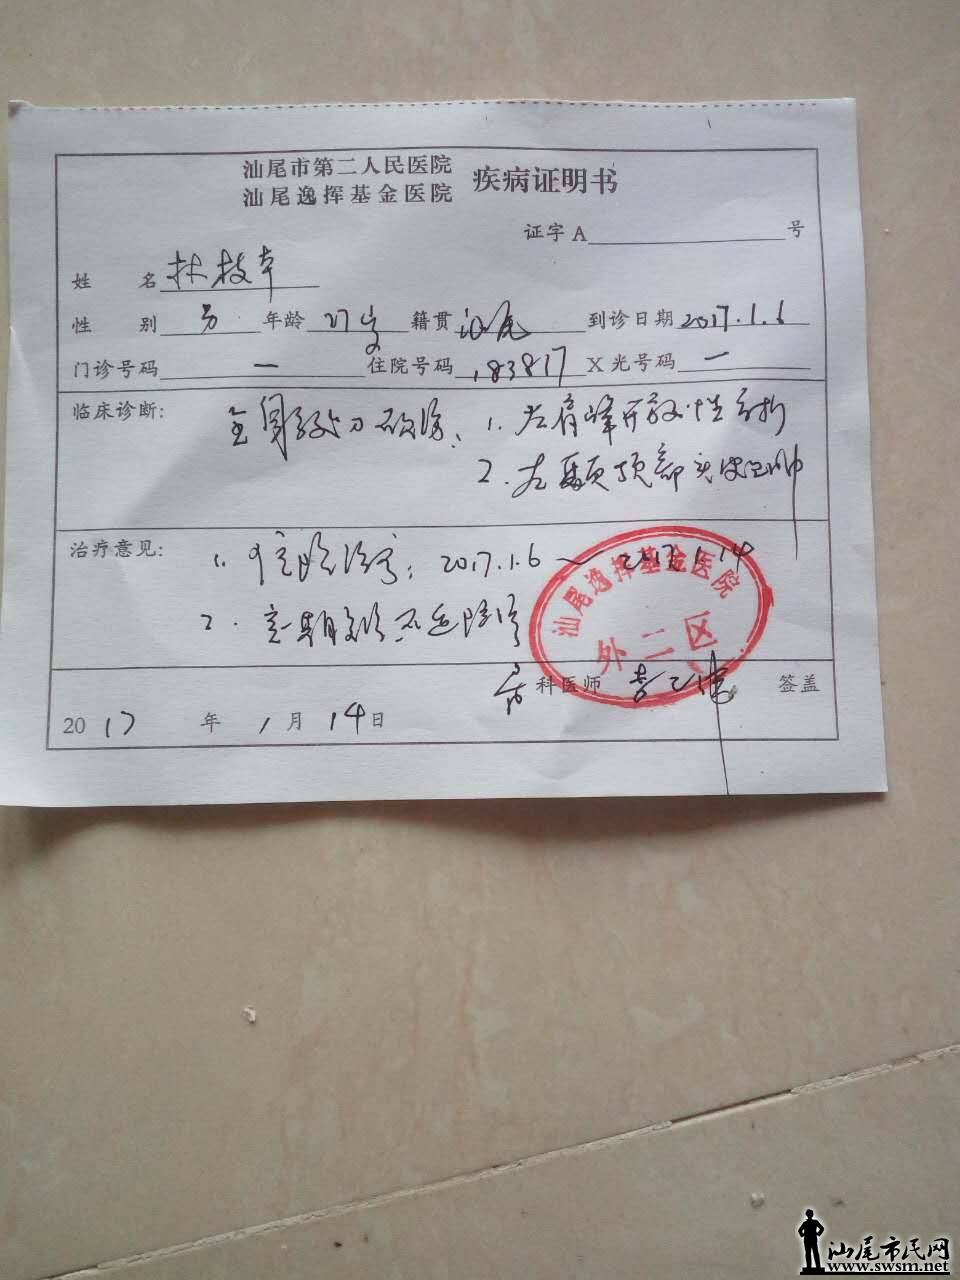 汕尾市第二人民医院
汕尾逸挥基金医院 疾病证明书
证字 A 号
姓 名 林枝本
性 别 男 年龄 27岁 籍贯 汕尾 到诊日期 2017.1.6
门诊号码 一 住院号码 183817 X光号码 一
临床诊断: 全身多处刀砍伤: 1. 左肩峰开放性骨折
2. 左颞顶部头皮
治疗意见: 1. 住院治疗: 2017.1.6 ~ 2017.1.14
2. 定期复诊 不适随诊
汕尾逸挥基金医院
外二区
科医师 签盖
2017 年 1 月 14 日
汕尾市民网
www.swsm.net